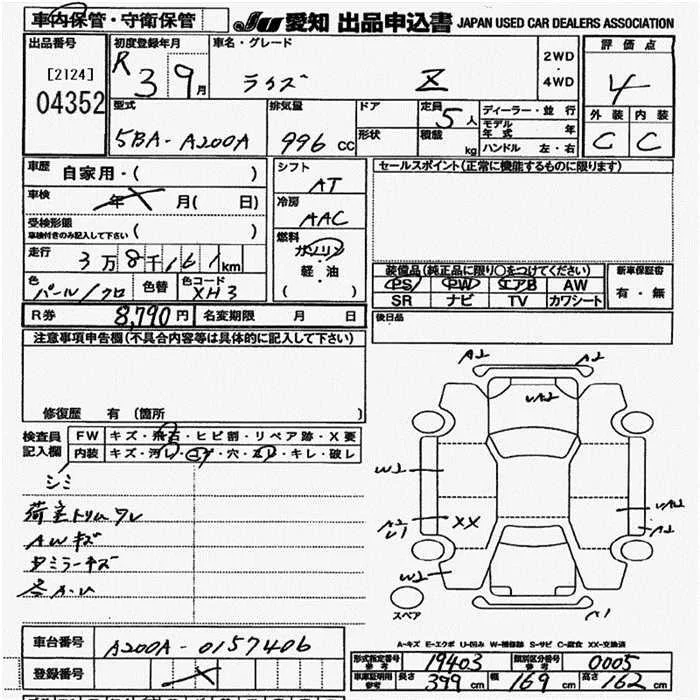 車内保管・守衛保管
JU 愛知 出品申込書 JAPAN USED CAR DEALERS ASSOCIATION
出品番号
[2124]
04352
初度登録年月
R 3 9月
車名・グレード
ライズ Z
2WD
・
4WD
評価点
4
外装 内装
C C
型式
5BA-A200A
排気量
996 CC
ドア
形状
定員
5人
積載
kg
ディーラー・並行
モデル年式 年
ハンドル 左・右
車歴 自家用・( )
車検 年 月( 日)
受検形態
車検付きのみ記入して下さい ( )
走行 3万8千161km
色 パール/クロ
色替
色コード XH3
シフト
AT
冷房
AAC
燃料
ガソリン
・
軽・油
( )
セールスポイント(正常に機能するものに限ります)
装備品(純正品に限り○をつけてください)
PS PW エアB AW
SR ナビ TV カワシート
新車保証書
有・無
後日品
R券 8,790円 名変期限 月 日
注意事項申告欄(不具合内容等は具体的に記入して下さい)
修復歴 有(箇所 )
検査員
記入欄
FW キズ・飛石・ヒビ割・リペア跡・X要
内装 キズ・汚レ・コゲ・穴・スレ・キレ・破レ
シミ
荷室トリムワレ
AWキズ
ドミラーキズ
A2 A2
W2
A2
U1
XX
A2
W2
スペア
A-キズ E-エクボ U-凹み W-補修跡 S-サビ C-腐食 XX-交換済
車台番号 A200A-0157406
登録番号
形式指定番号
参考
19403
類別区分番号
参考
0005
車庫証明用
参考
長さ 399 cm 幅 169 cm 高さ 162 cm